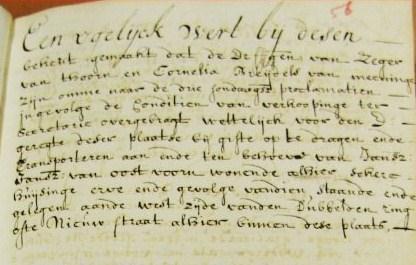 58
Een ygelijck wert bij desen
bekent gemaackt dat de van Zeger
van thoorn en Cornelia van meening
zijn omme naer de drie sondaegse proclamatien
ingevolge de Conditien van verkoopinge ter
Secretarie overgebragt wettelijck voor den E:
geregte deser plaatse bij gifte op te dragen ende
transporteren aan ende ten behoeve van Jansz
van oost voorn wonende alhier sekere
huijsinge erve ende gevolge vandien staande ende
gelegen aande west zijde vanden Dubbelden ring
ofte Nieuw straat alhier binnen dese plaats,